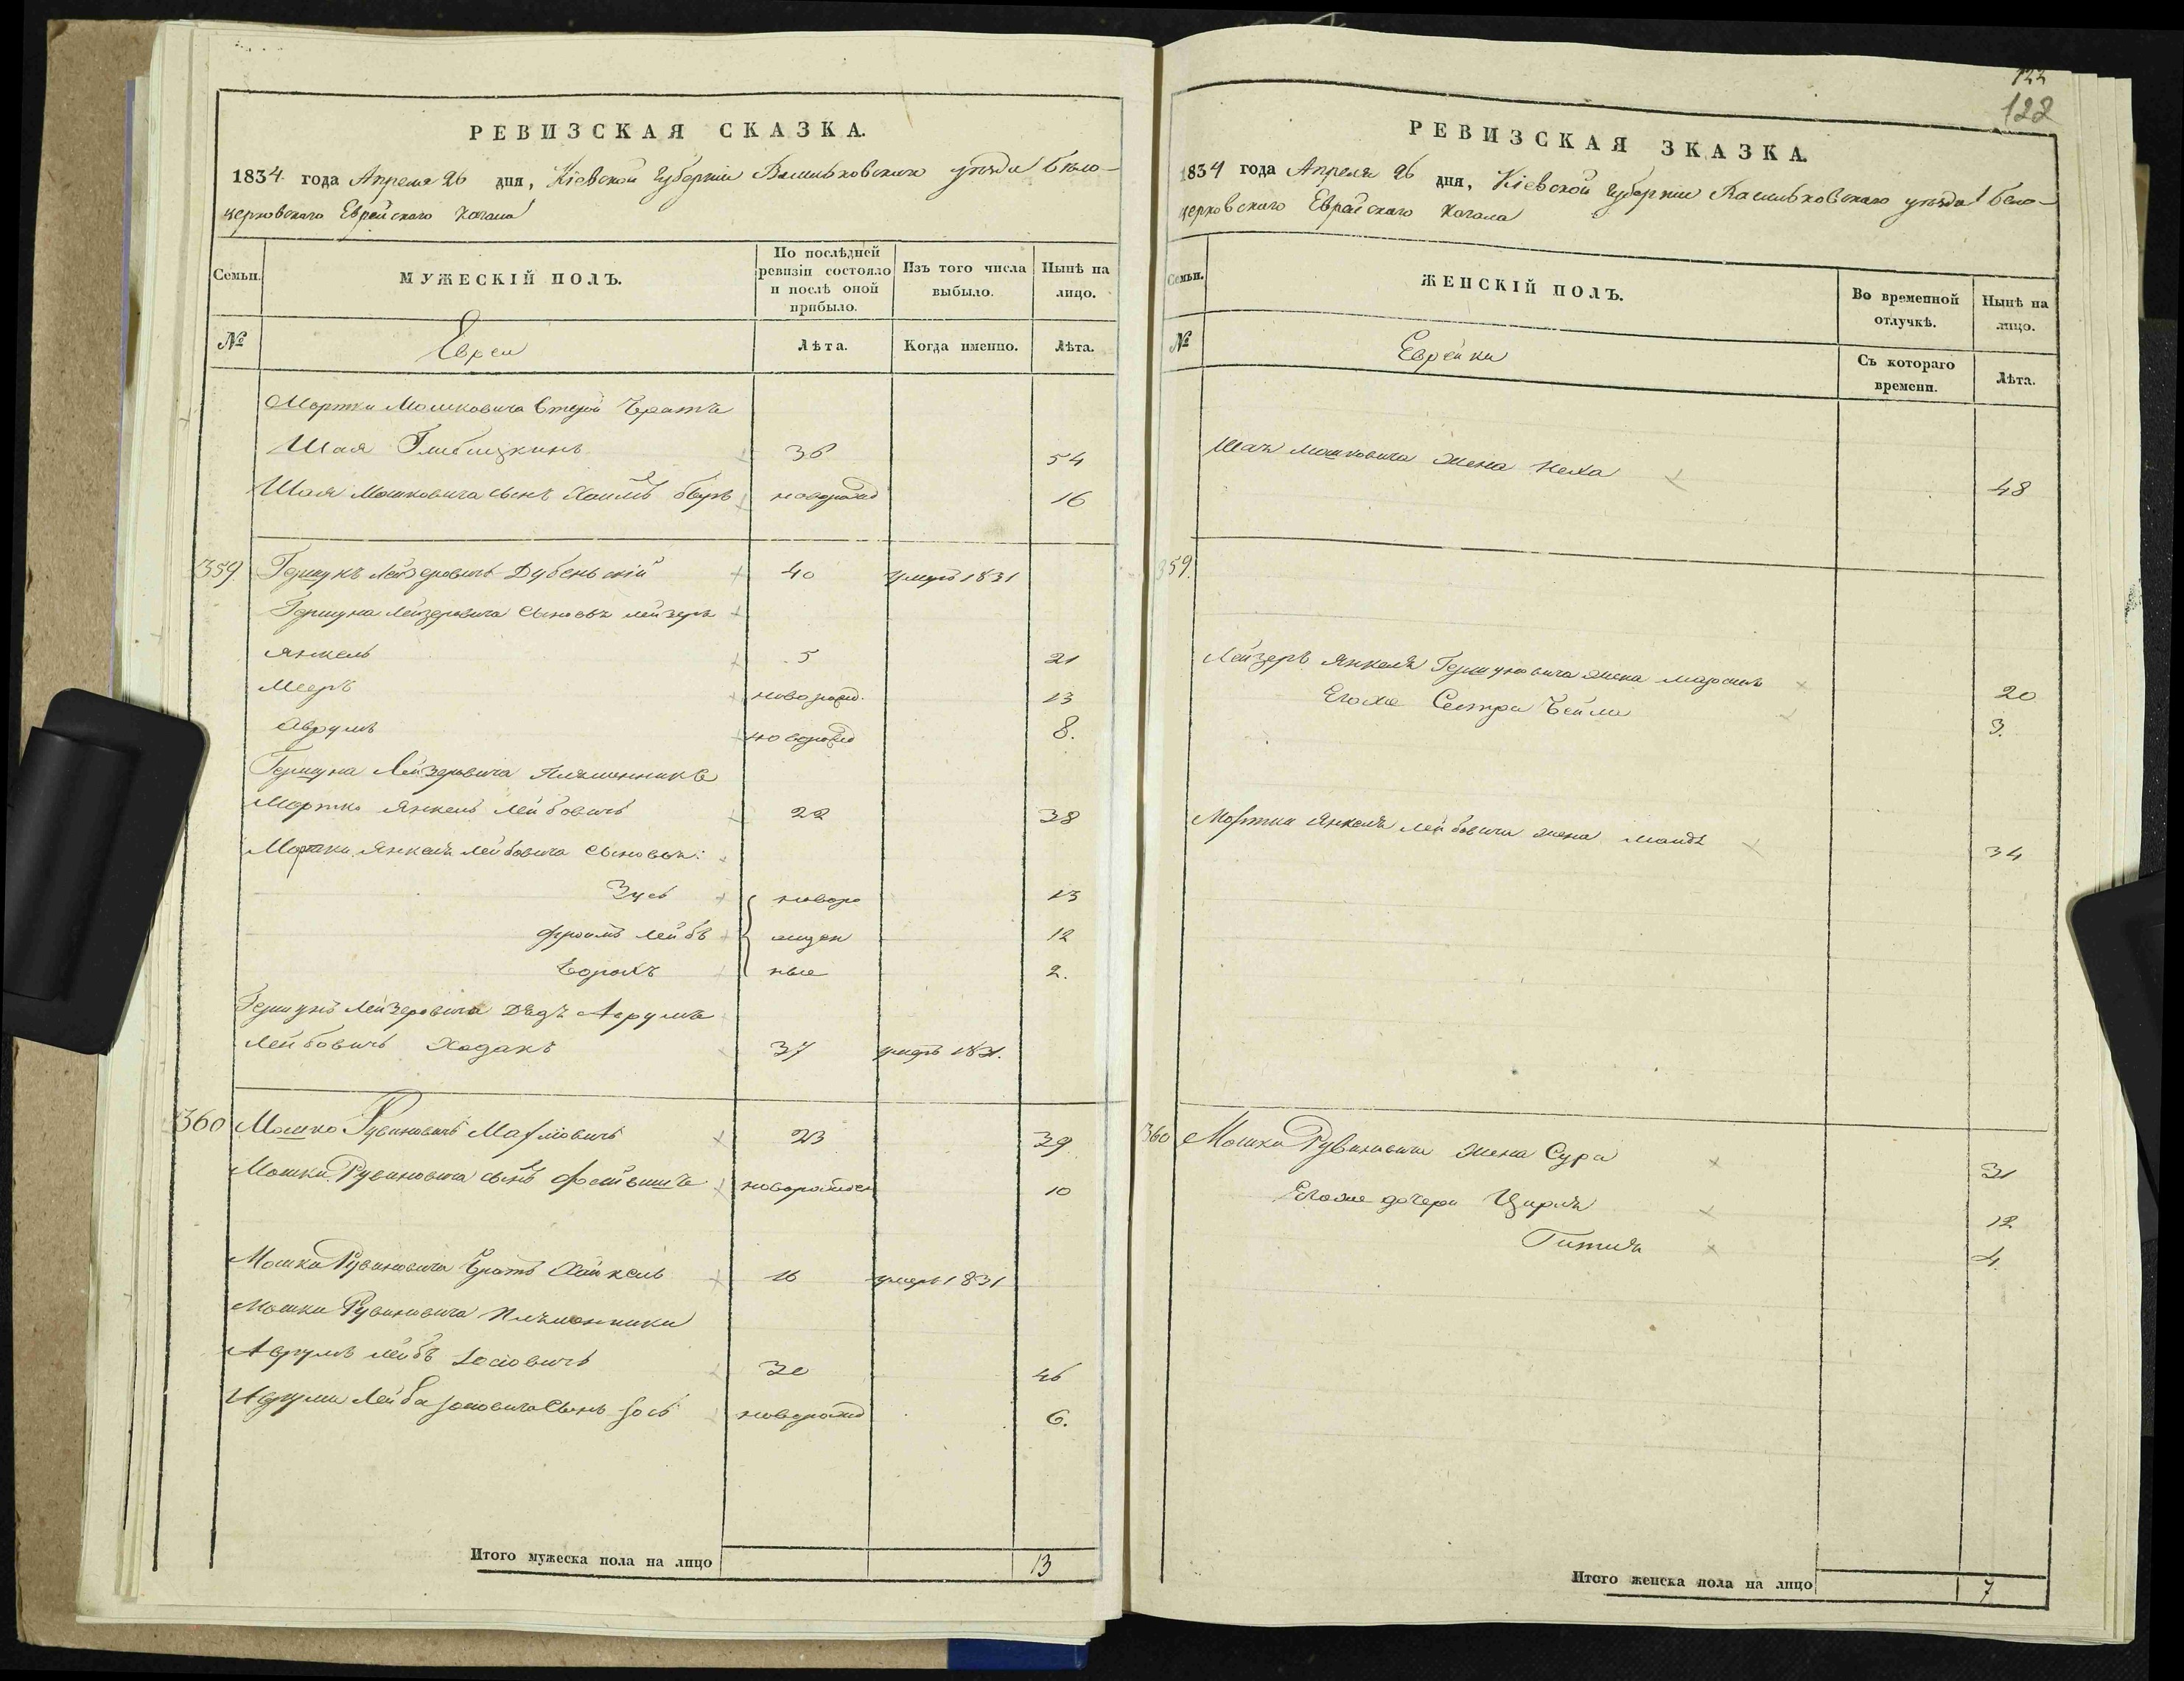 РЕВИЗСКАЯ СКАЗКА.
1834 года Апреля 26 дня, Кіевской Губерніи Васильковскаго уѣзда бѣло-
церковскаго Еврейскаго Кагала
Семьи.
МУЖЕСКІЙ ПОЛЪ.
По послѣдней ревизіи состояло и послѣ оной прибыло.
Изъ того числа выбыло.
Нынѣ на лицо.
№
Евреи
Лѣта.
Когда именно.
Лѣта.
Мортки Мошковича второй братъ
Шая 36 54
Шая Мошковича сынъ Хаимъ беръ новорожд 16
359 Гершунъ Лейзеровичъ Дубенскій 40 умеръ 1831
Гершуна Лейзеровича сыновья лейзеръ
янкель 5 21
Мееръ новорожд. 13
Аврумъ новорожд 8.
Гершуна Лейзеровича племенника
Мортко Янкель Лейбовичъ 22 38
Мортки Янкеля Лейбовича сыновья:
Зусь новоро 13
фроимъ лейбъ жден 12
борохъ ные 2.
Гершуна Лейзеровича дядъ Аврумъ
Лейбовичъ Ходакъ 37 умеръ 1831.
360 Мошко Рувиновичъ 23 39
Мошки Рувиновича сынъ фейвишъ новорожден 10
Мошки Рувиновича братъ Хайкель 16 умеръ 1831
Мошки Рувиновича племенники
Аврумъ лейбъ Iосіовичъ 30 46
Аврума Лейба Iосіовича сынъ Iось новорожд 6.
Итого мужеска пола на лицо 13
122
122
РЕВИЗСКАЯ ЗКАЗКА.
1834 года Апреля 26 дня, Кіевской Губерніи Васильковскаго уѣзда бело-
церковскаго Еврейскаго Кагала
Семьи.
ЖЕНСКІЙ ПОЛЪ.
Во временной отлучкѣ.
Нынѣ на лицо.
№
Еврейки
Съ котораго времени.
Лѣта.
Шаи мошковича жена Неха 48
359.
Лейзеръ янкеля Гершуновича жена 20
Егоже Сестра бейла 3.
Мортки Янкеля лейбовича жена 34
360 Мошки Рувиновича жена Сура 31
Егоже дочери Цирля 12
Гитля 4
Итого женска пола на лицо 7